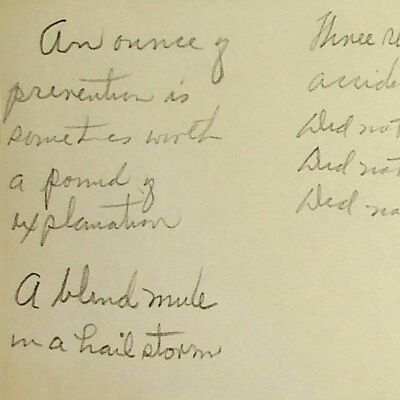 An ounce of
prevention is
someties worth
a pound of
explanation
A blind mule
in a hail storm
Three
Did not
Did not
Did